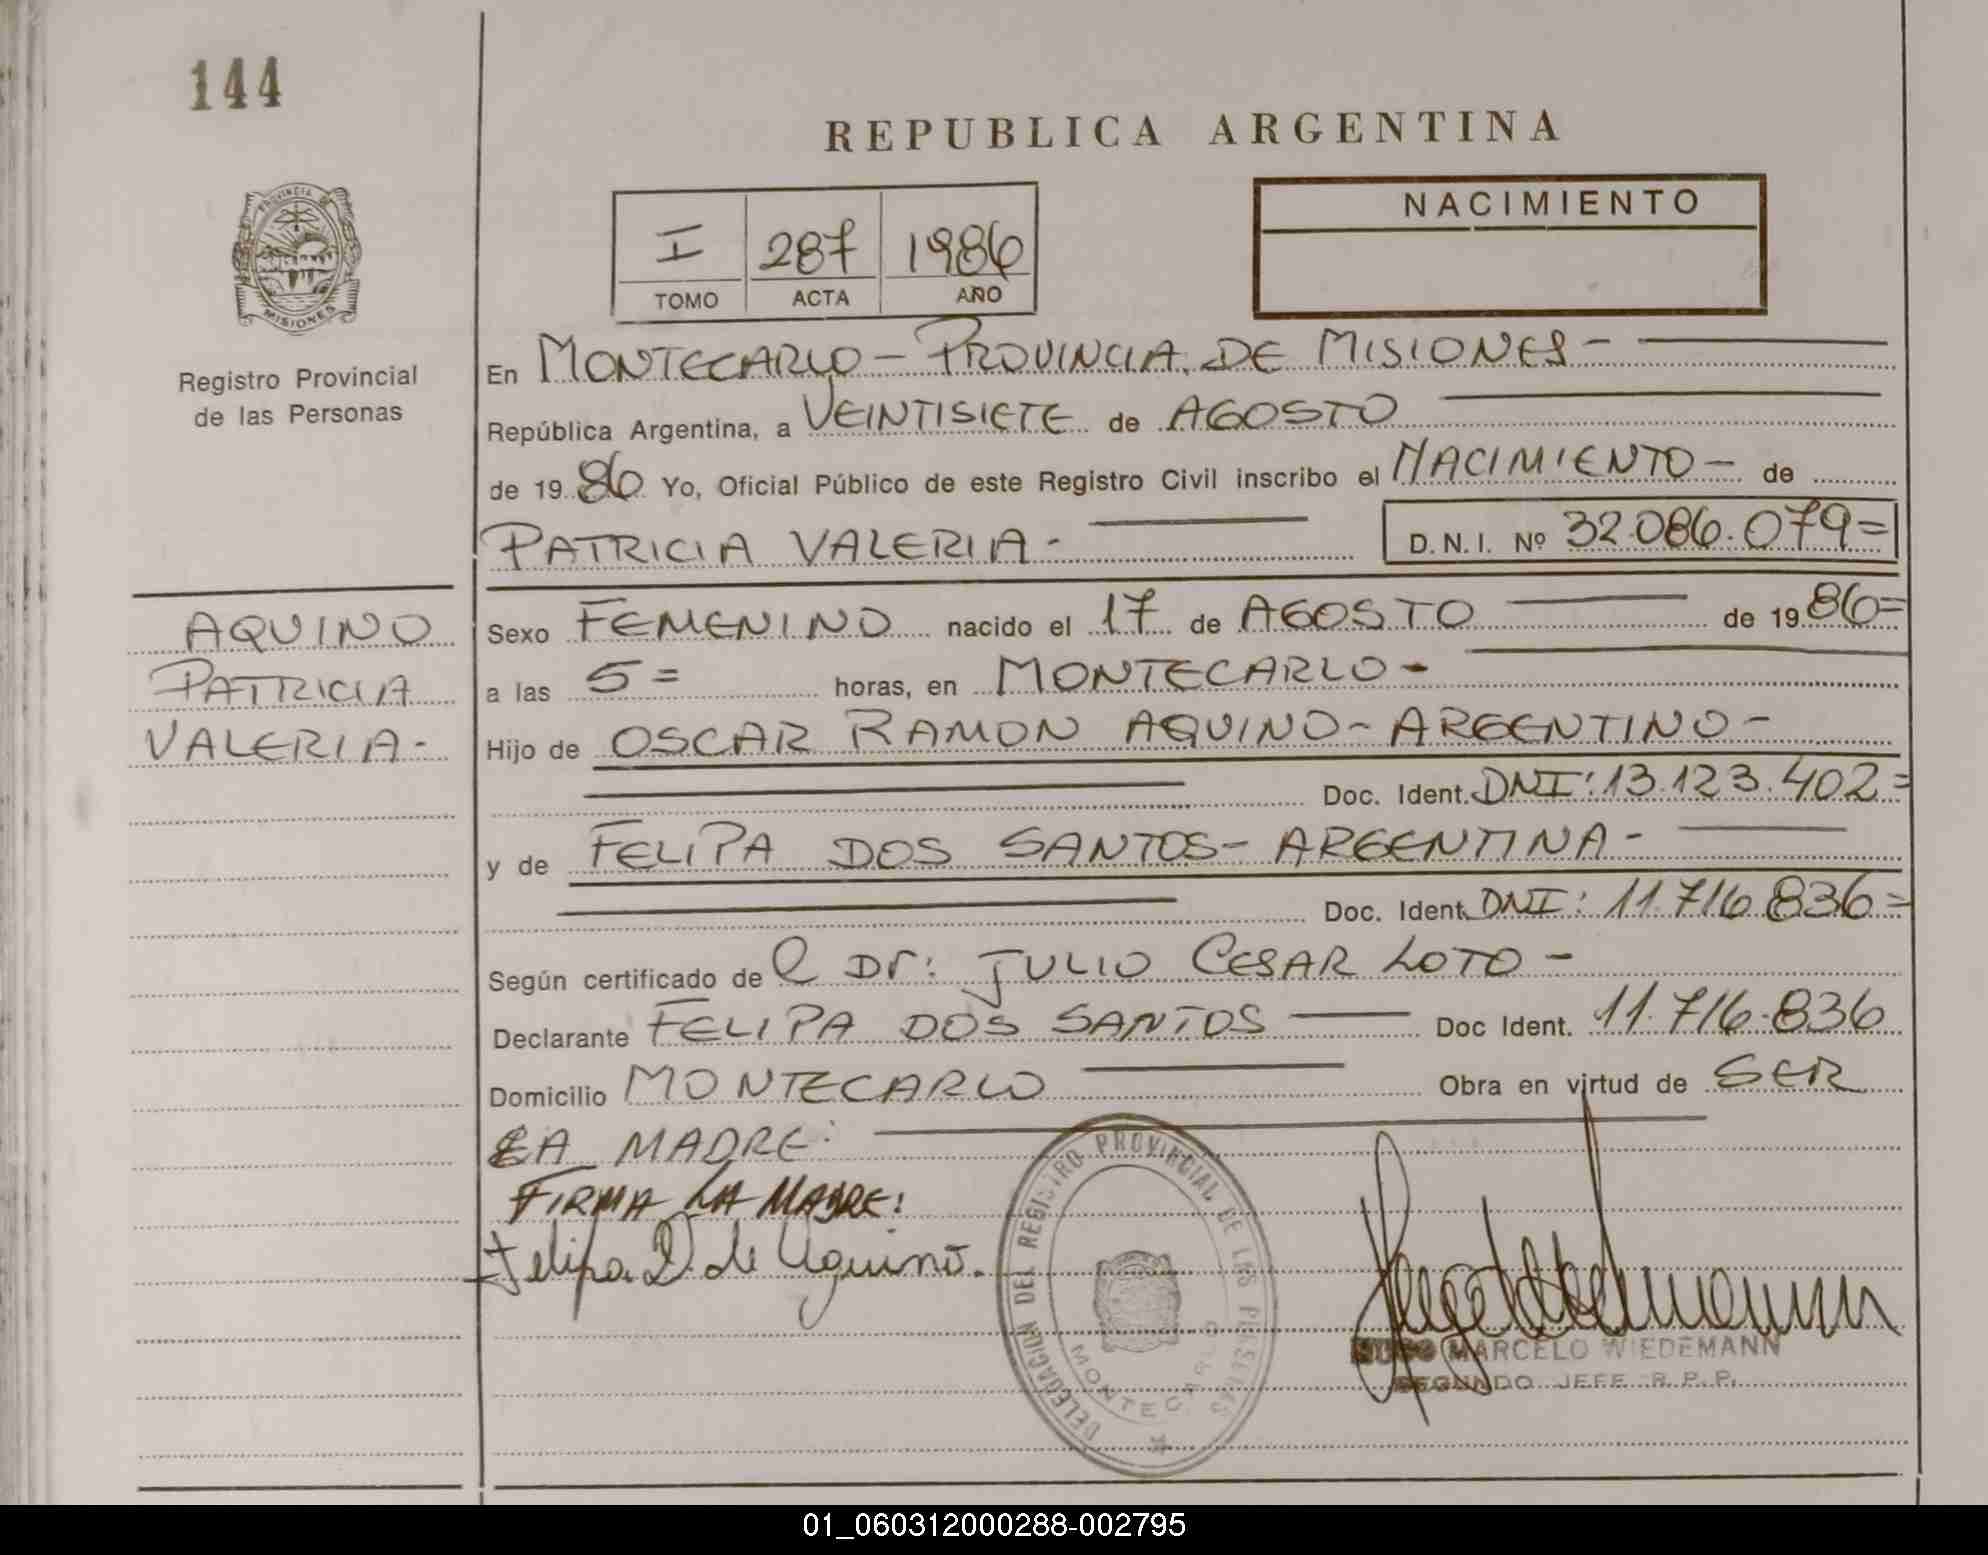 144
REPUBLICA ARGENTINA
PROVINCIA DE
MISIONES
Registro Provincial
de las Personas
I 287 1986
TOMO ACTA AÑO
NACIMIENTO
En MONTECARLO - PROVINCIA DE MISIONES -
República Argentina, a VEINTISIETE de AGOSTO
de 1986 Yo, Oficial Público de este Registro Civil inscribo el NACIMIENTO - de
PATRICIA VALERIA - D.N.I. Nº 32.086.079=
AQUINO
PATRICIA
VALERIA -
Sexo FEMENINO nacido el 17 de AGOSTO de 1986=
a las 5= horas, en MONTECARLO -
Hijo de OSCAR RAMON AQUINO - ARGENTINO -
Doc. Ident. DNI: 13.123.402=
y de FELIPA DOS SANTOS - ARGENTINA -
Doc. Ident. DNI: 11.716.836=
Según certificado de l Dr: JULIO CESAR LOTO -
Declarante FELIPA DOS SANTOS Doc Ident. 11.716.836
Domicilio MONTECARLO Obra en virtud de SER
LA MADRE:
FIRMA LA MADRE:
Felipa D. de Aquino.
DELEGACION DEL REGISTRO PROVINCIAL DE LAS PERSONAS
MONTECARLO
HUGO MARCELO WIEDEMANN
SEGUNDO JEFE R.P.P.
01_060312000288-002795